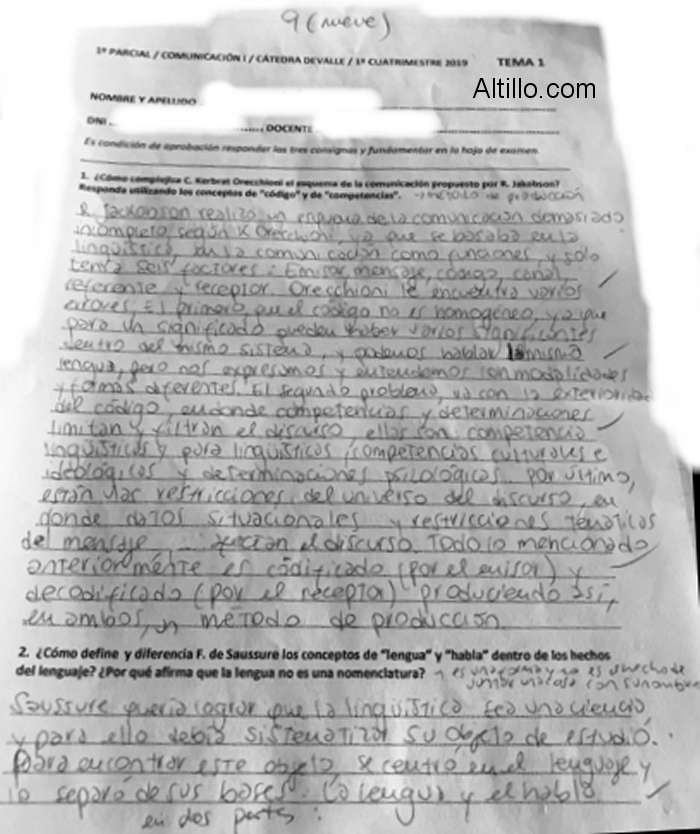 9 (nueve)
1º PARCIAL / COMUNICACIÓN I / CÁTEDRA DEVALLE / 1º CUATRIMESTRE 2019 TEMA 1
Altillo.com
NOMBRE Y APELLIDO
DNI DOCENTE
Es condición de aprobación responder las tres consignas y fundamentar en la hoja de examen.
1. ¿Cómo complejiza C. Kerbrat Orecchioni el esquema de la comunicación propuesto por R. Jakobson?
Responda utilizando los conceptos de "código" y de "competencias". → método de producción
R. Jackonson realizó un esquema de la comunicación demasiado
incompleto según K Orecchioni, ya que se basaba en la
lingüística, en la comunicación como funciones, y solo
tenía seis factores: Emisor, mensaje, código, canal,
referente y receptor. Orecchioni le encuentra varios
errores, El primero, que el código no es homogéneo, ya que
para un significado pueden haber varios significantes
dentro del mismo sistema, y podemos hablar la misma
lengua, pero nos expresamos y entendemos con modalidades
y formas diferentes. El segundo problema, va con la exterioridad
del código, en donde competencias y determinaciones
limitan y filtran el discurso, ellas son: competencia
lingüísticas y para lingüísticos, competencias culturales e
ideológicas y determinaciones psicológicas. Por último,
están las restricciones del universo del discurso, en
donde datos situacionales y restricciones temáticas
del mensaje el discurso. Todo lo mencionado
anteriormente es códificado (por el emisor) y
decodificado (por el receptor) produciendo así,
en ambos, un método de producción.
2. ¿Cómo define y diferencia F. de Saussure los conceptos de "lengua" y "habla" dentro de los hechos
del lenguaje? ¿Por qué afirma que la lengua no es una nomenclatura? → es una forma y no es el hecho de
juntar una cosa con su nombre
Saussure quería lograr que la lingüística sea una ciencia
y para ello debía sistematizar su objeto de estudio.
Para encontrar este objeto, se centró en el lenguaje y
lo separó de sus bases. La lengua y el habla
en dos partes: